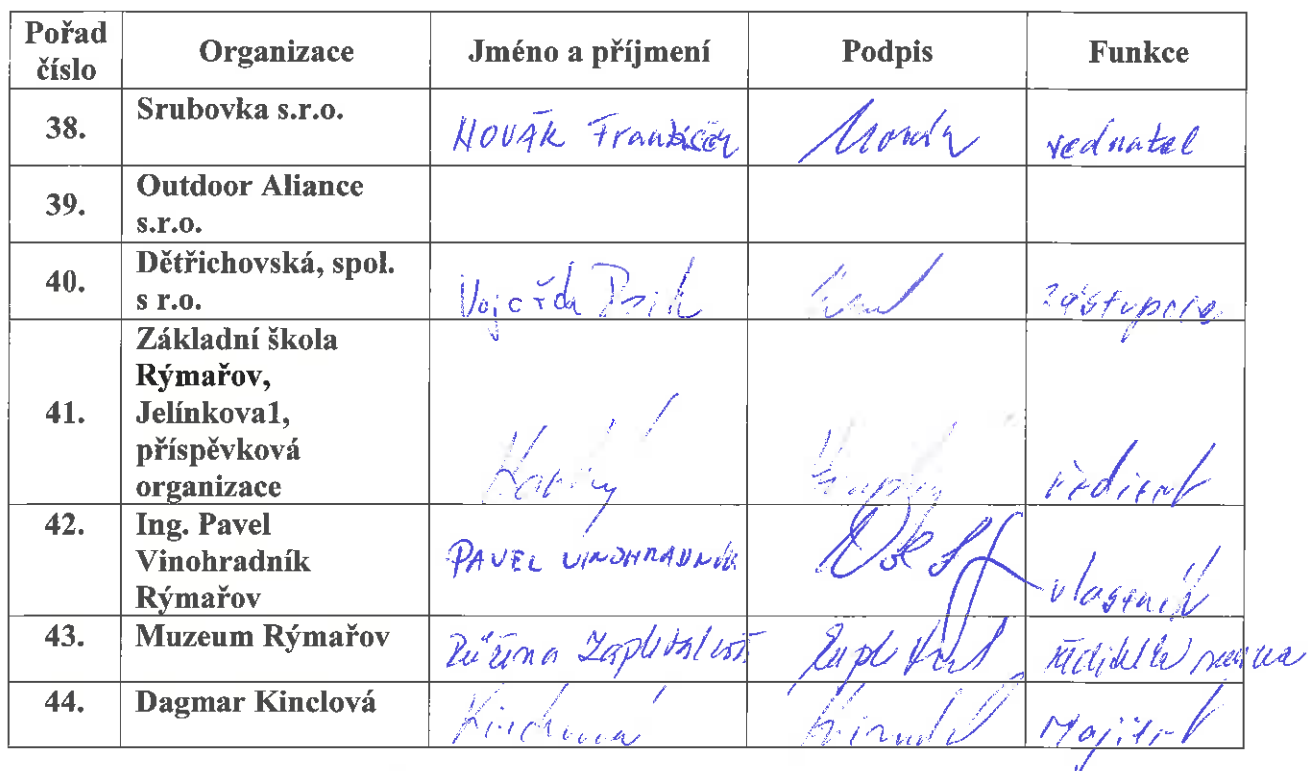 Pořad číslo Organizace Jméno a příjmení Podpis Funkce
38. Srubovka s.r.o. NOVÁK František Novák jednatel
39. Outdoor Aliance
s.r.o.
40. Dětřichovská, spol.
s r.o. zástupce
41. Základní škola
Rýmařov,
Jelínkova1,
příspěvková
organizace ředitel
42. Ing. Pavel
Vinohradník
Rýmařov PAVEL VINOHRADNÍK vlastník
43. Muzeum Rýmařov Růžena Zapletalová ředitelka muzea
44. Dagmar Kinclová Kinclová majitel